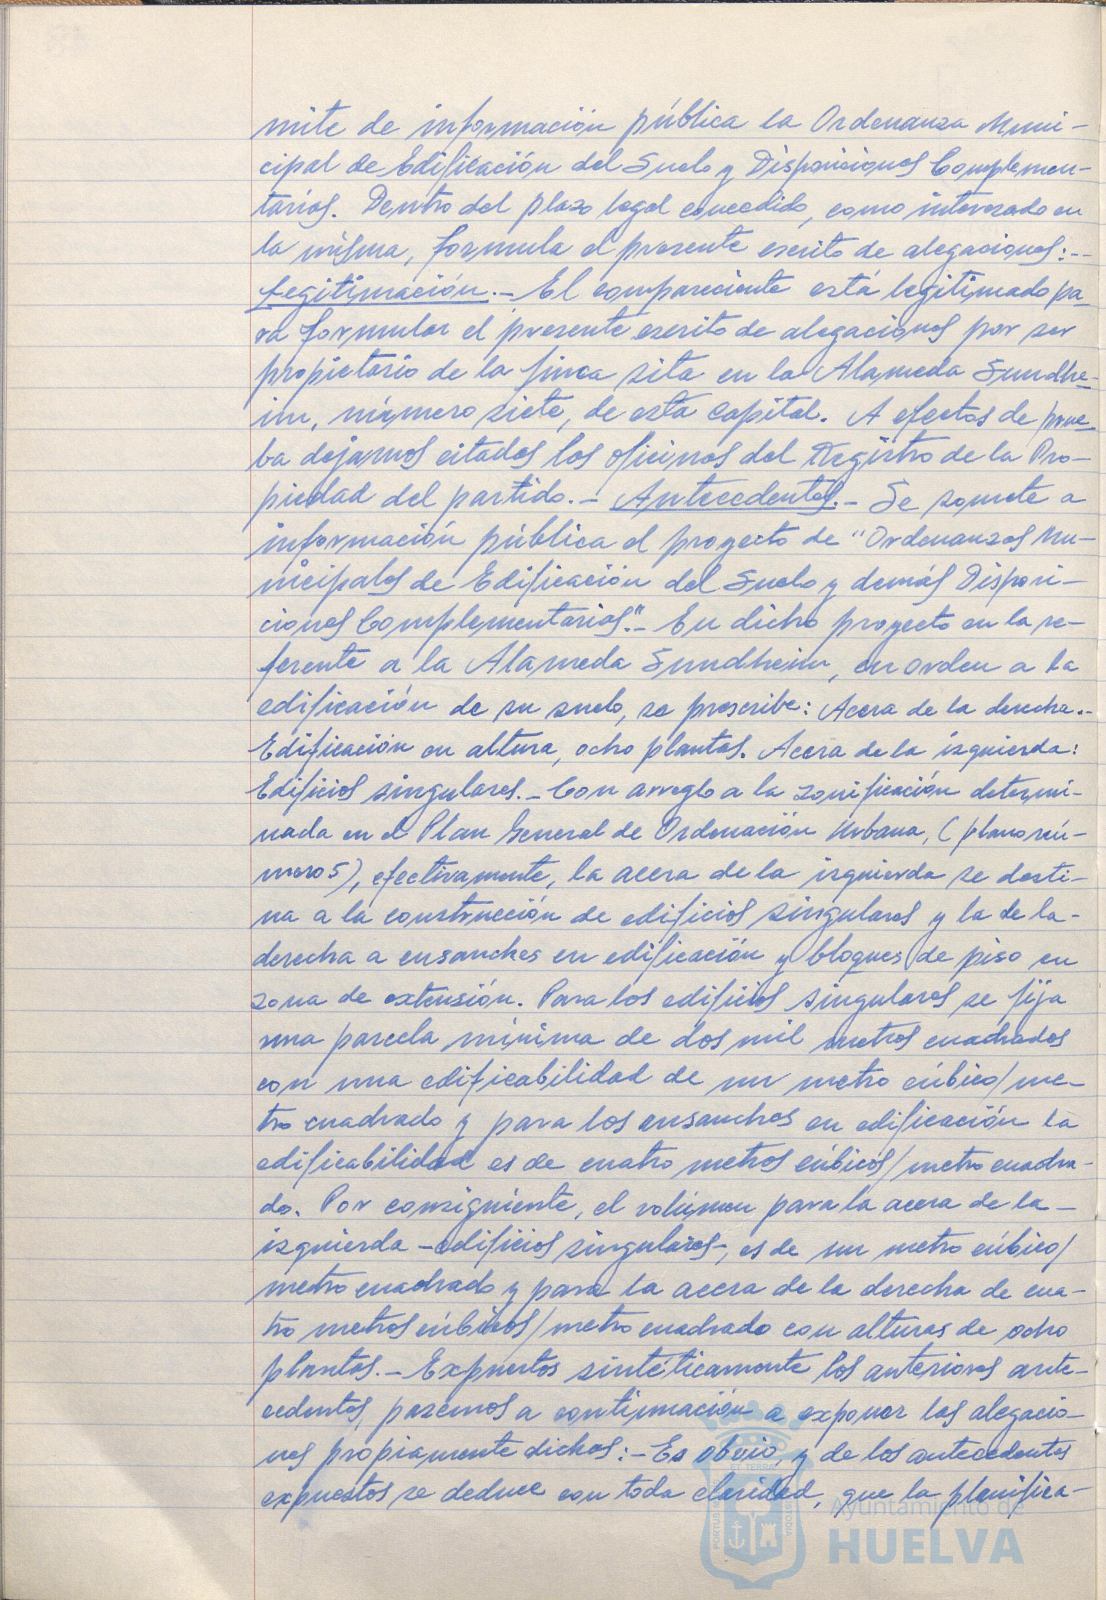 mite de información pública la Ordenanza Muni-
cipal de Edificación del Suelo y Disposiciones Complemen-
tarias. Dentro del plazo legal concedido, como interesado en
la misma, formula el presente escrito de alegaciones:--
Legitimación.- El compareciente está legitimado pa-
ra formular el presente escrito de alegaciones por ser
propietario de la finca sita en la Alameda Sundhe-
im, número siete, de esta capital. A efectos de prue-
ba dejamos citados los oficinas del Registro de la Pro-
piedad del partido.- Antecedentes.- Se somete a
información pública el proyecto de "Ordenanzas Mu-
nicipales de Edificación del Suelo y demás Disposi-
ciones Complementarias".- En dicho proyecto en la re-
ferente a la Alameda Sundheim, en orden a la
edificación de su suelo, se prescribe: Acera de la derecha.-
Edificación en altura, ocho plantas. Acera de la izquierda:
Edificios singulares.- Con arreglo a la zonificación determi-
nada en el Plan General de Ordenación Urbana, (plano nú-
mero 5), efectivamente, la acera de la izquierda se desti-
na a la construcción de edificios singulares y la de la-
derecha a ensanches en edificación y bloques de piso en
zona de extensión. Para los edificios singulares se fija
una parcela mínima de dos mil metros cuadrados
con una edificabilidad de un metro cúbico/me-
tro cuadrado y para los ensanches en edificación la
edificabilidad es de cuatro metros cúbicos/metro cuadra-
do. Por consiguiente, el volúmen para la acera de la-
izquierda -edificios singulares-, es de un metro cúbico/
metro cuadrado y para la acera de la derecha de cua-
tro metros cúbicos/metro cuadrado con alturas de ocho
plantas.- Expuestos sintéticamente los anteriores ante-
cedentes, pasemos a continuación a exponer las alegacio-
nes propiamente dichas:- Es obvio, y de los antecedentes
expuestos se deduce con toda claridad, que la planifica-
Ayuntamiento de
HUELVA